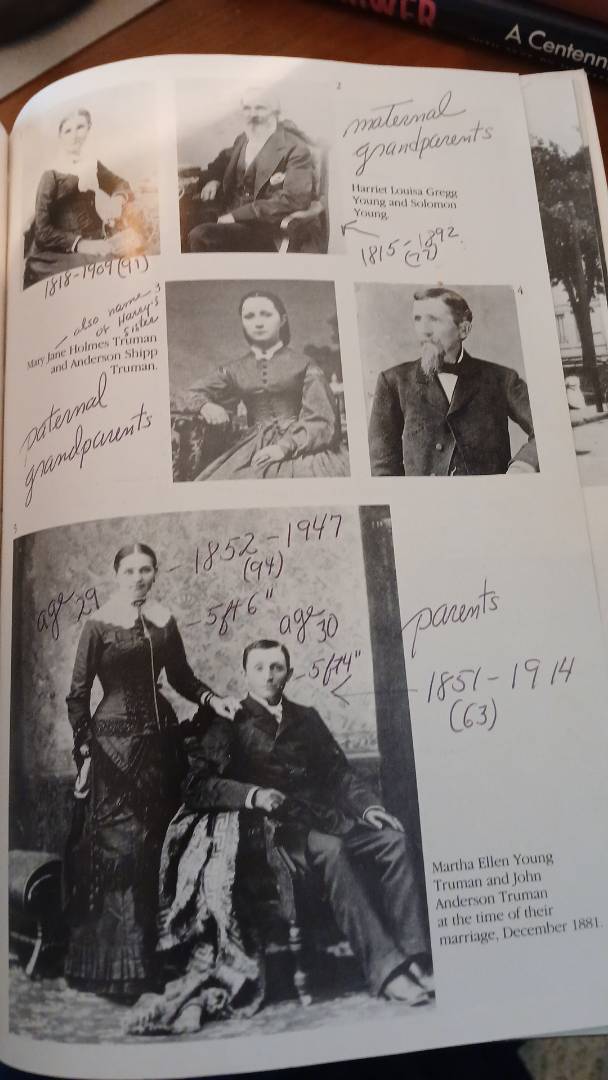 A Centenn
2
maternal
grandparents
Harriet Louisa Gregg
Young and Solomon
Young.
1815-1892
(77)
1818-1909 (91)
3
also name
of Harry's
sister
Mary Jane Holmes Truman
and Anderson Shipp
Truman.
paternal
grandparents
4
5
1852-1947
(94)
age 29
5ft 6"
age 30
5ft4"
parents
1851-1914
(63)
Martha Ellen Young
Truman and John
Anderson Truman
at the time of their
marriage, December 1881.